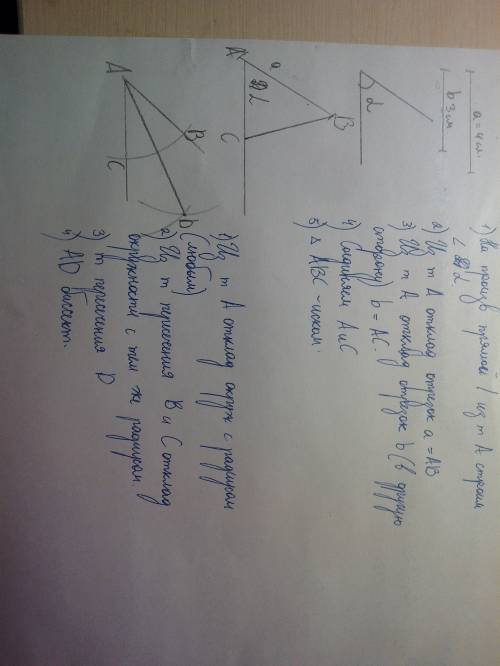 a = 4 см.
b 3 см
α
1) На произв прямой / из т А строим
∠ α
2) Из т А отклад отрезок a = AB
3) Из т А отклад отрезок b (в другую
сторону) b = AC.
4) Соединяем A и C
5) △ ABC - иском.
A
a
α
B
C
1) Из т А отклад окруж с радиусом
(любым)
2) Из т пересечения B и C отклад
окружности с тем же радиусом.
3) т пересечения D
4) AD биссект.
A
B
C
D